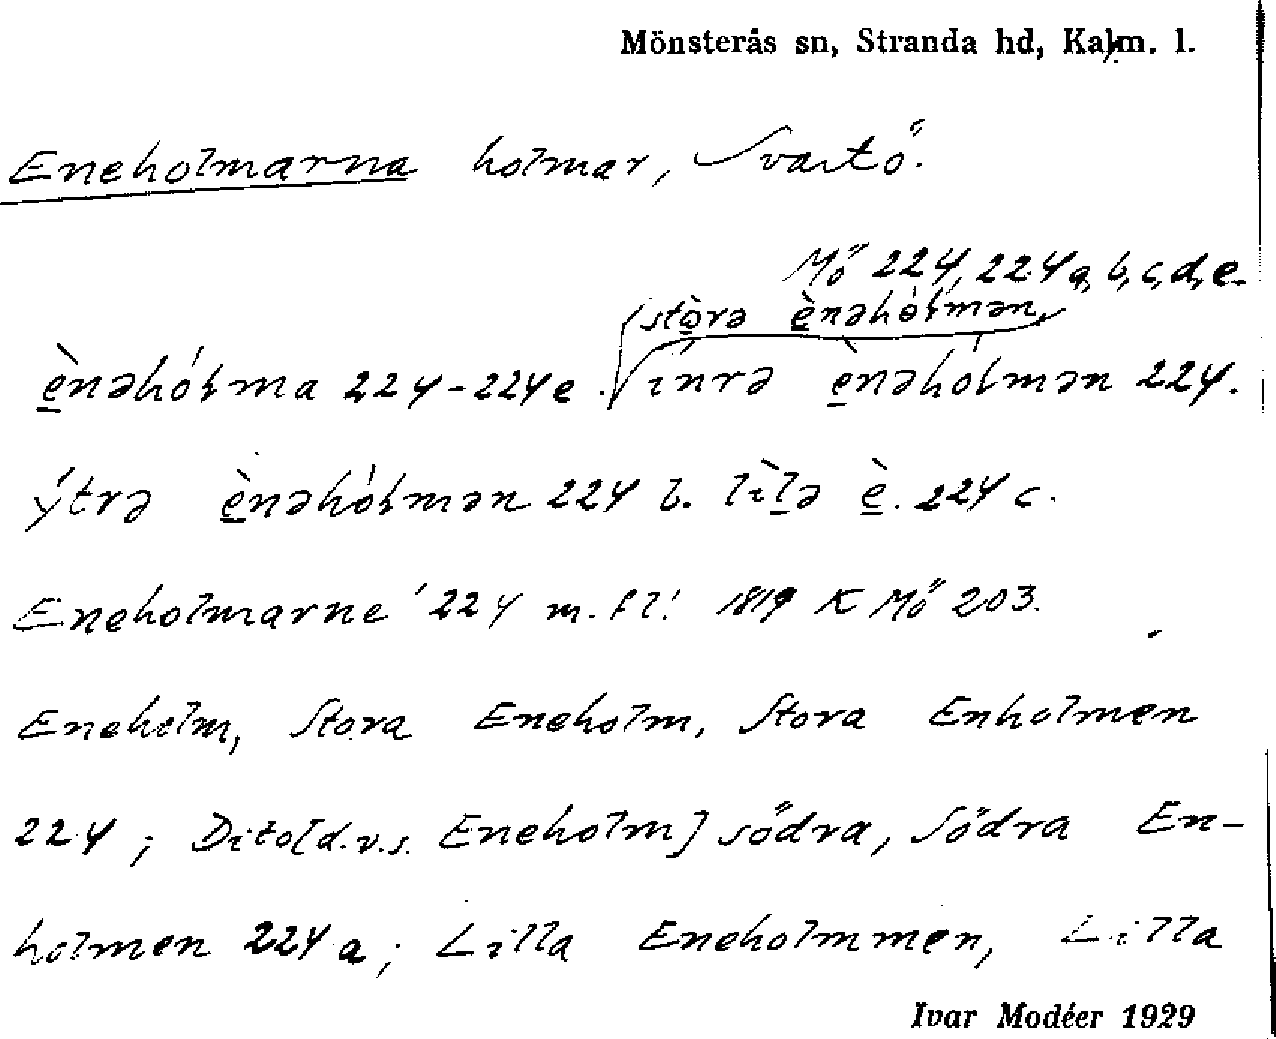 Mönsterås sn, Stranda hd, Kalm. l.
Eneholmarna holmar, Svartö.
Mö 224, 224 a, b, c, d, e.
(stò̱rə è̱nəhóɫmən,
è̱nəhóɫma 224-224e. ínrə è̱nəhóɫmən 224.
ýtrə è̱nəhóɫmən 224 b. lìḻə è̱. 224 c.
Eneholmarne '224 m.fl.' 1819 K Mö 203.
Eneholm, Stora Eneholm, Stora Enholmen
224; Dito [d.v.s. Eneholm] södra, Södra En-
holmen 224 a; Lilla Eneholmmen, Lilla
Ivar Modéer 1929